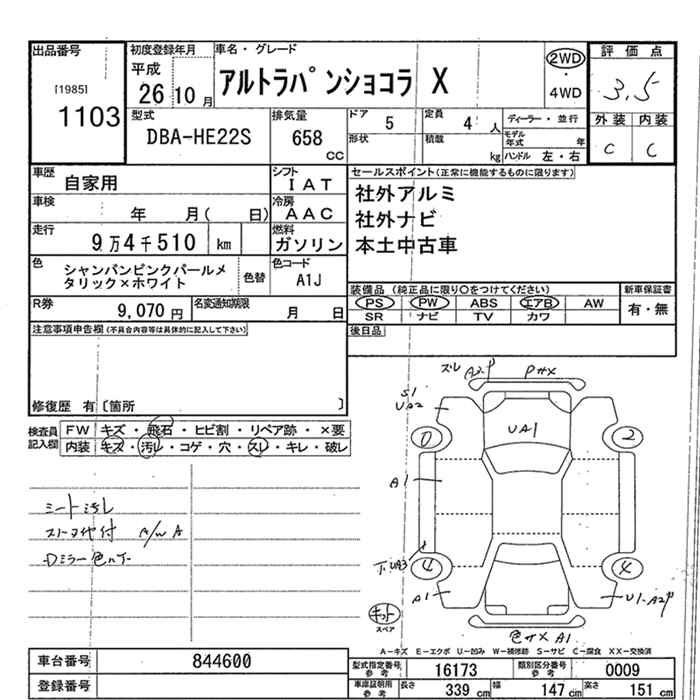 出品番号
[1985]
1103
初度登録年月
平成
26 10 月
車名・グレード
アルトラパンショコラ X
2WD
・
4WD
評価点
3.5
外装 内装
C C
型式
DBA-HE22S
排気量
658
CC
ドア 5
定員 4 人
形状
積載 kg
ディーラー・並行
モデル年式 年
ハンドル 左・右
車歴
自家用
シフト
IAT
セールスポイント(正常に機能するものに限ります)
社外アルミ
社外ナビ
本土中古車
車検
年 月( 日)
冷房
AAC
走行
9万4千510 km
燃料
ガソリン
色
シャンパンピンクパールメ
タリック×ホワイト
色替
色コード
A1J
装備品 (純正品に限り○をつけてください)
PS PW ABS エアB AW
SR ナビ TV カワ
新車保証書
有・無
R券
9,070 円
名変通知期限
月 日
後日品
注意事項申告欄(不具合内容等は具体的に記入して下さい)
修復歴 有〔箇所 〕
検査員
記入欄
FW キズ・飛石・ヒビ割・リペア跡・×要
内装 キズ・汚レ・コゲ・穴・スレ・キレ・破レ
シート汚レ
A/W A
Dミラー色
ズレ A2P
UA2
UA1
2
A1
UA3
4
A1
U1・A2P
キット
スペア
A1
A-キズ E-エクボ U-凹み W-補修跡 S-サビ C-腐食 XX-交換済
車台番号
844600
登録番号
型式指定番号
参考
16173
類別区分番号
参考
0009
車庫証明用
参考
長さ 339 cm
幅 147 cm
高さ 151 cm